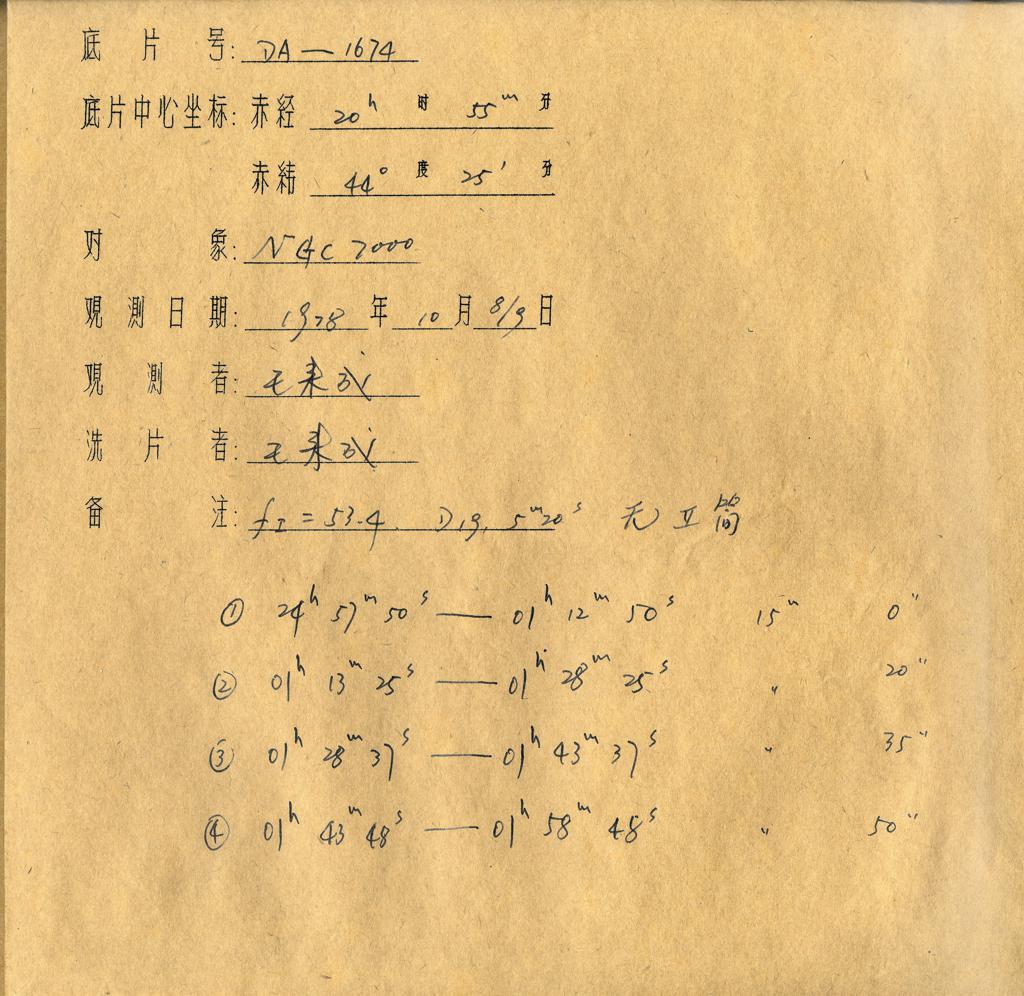 底片号: DA — 1674
底片中心坐标: 赤经 20ʰ 时 55ᵐ 分
赤纬 44° 度 25′ 分
对象: NGC 7000
观测日期: 1978 年 10 月 8/9 日
观测者:
洗片者:
备注: f_I = 53.4. D19, 5ᵐ20ˢ 无 筒
① 24ʰ 57ᵐ 50ˢ — 01ʰ 12ᵐ 50ˢ 15ᵐ 0″
② 01ʰ 13ᵐ 25ˢ — 01ʰ 28ᵐ 25ˢ 〃 20″
③ 01ʰ 28ᵐ 37ˢ — 01ʰ 43ᵐ 37ˢ 〃 35″
④ 01ʰ 43ᵐ 48ˢ — 01ʰ 58ᵐ 48ˢ 〃 50″